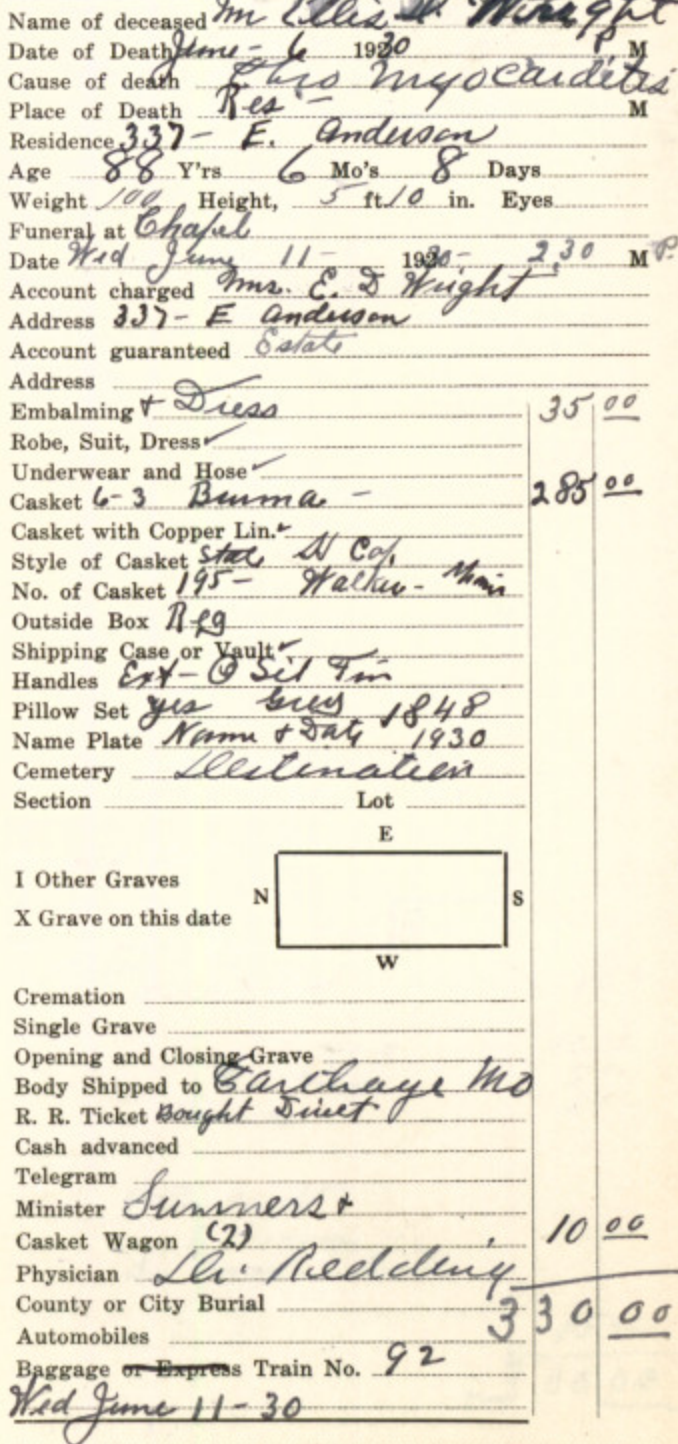 Name of deceased Mr Ellis D. Wright
Date of Death June - 6 1930 P M
Cause of death Chro Myocarditis
Place of Death Res - M
Residence 337 - E. Anderson
Age 88 Y'rs 6 Mo's 8 Days
Weight 100 Height, 5 ft 10 in. Eyes
Funeral at Chapel
Date Wed June 11 - 1930 - 2,30 M P.
Account charged Mrs. E. D Wright
Address 337 - E Anderson
Account guaranteed Estate
Address
Embalming & Dress 35 00
Robe, Suit, Dress ✓
Underwear and Hose ✓
Casket 6-3 Burma - 285 00
Casket with Copper Lin. ✓
Style of Casket State H Cap
No. of Casket 195 - Walker -
Outside Box Reg
Shipping Case or Vault ✓
Handles Ext - O Sil Tin
Pillow Set yes Grey 1848
Name Plate Name & Date 1930
Cemetery Destination
Section Lot
E
I Other Graves
N S
X Grave on this date
W
Cremation
Single Grave
Opening and Closing Grave
Body Shipped to Carthage Mo
R. R. Ticket Bought Direct
Cash advanced
Telegram
Minister Summers +
Casket Wagon (2) 10 00
Physician Dr. Redding
County or City Burial 330 00
Automobiles
Baggage or Express Train No. 92
Wed June 11 - 30